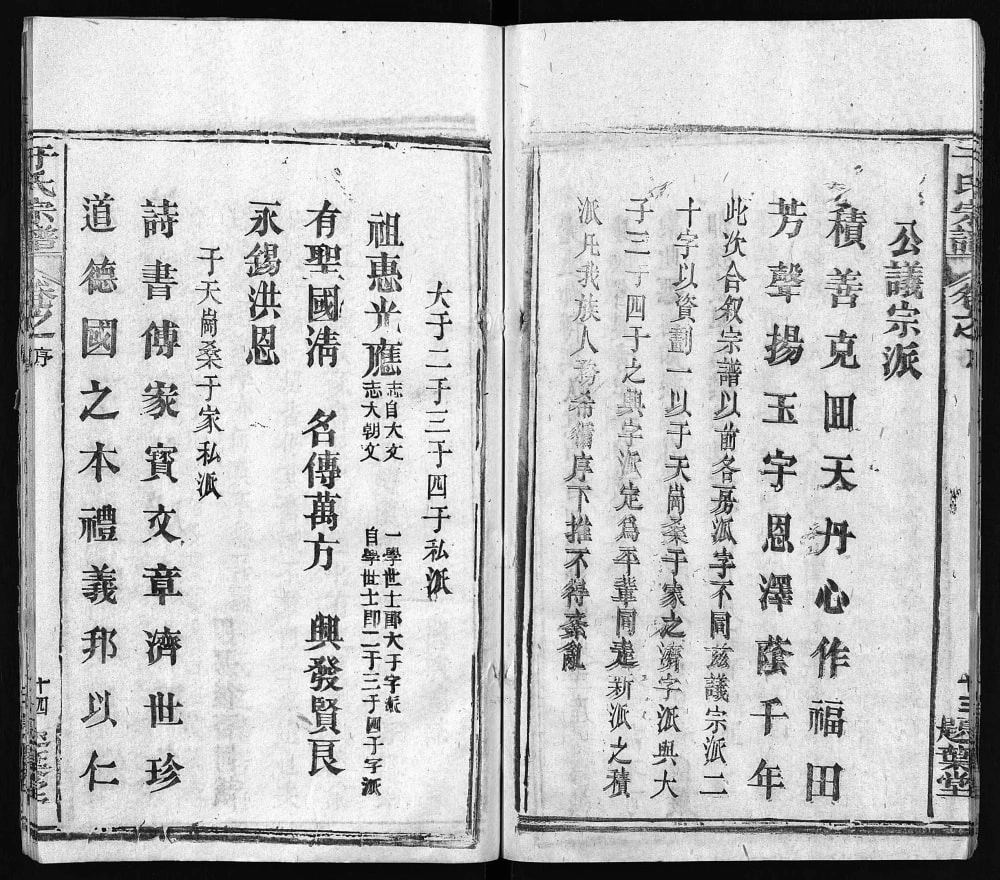 公議宗派
積善克田天丹心作福田
芳聲揚玉宇恩澤蔭千年
此次合叙宗譜以前各房派字不同兹議宗派二
十字以資劃一以于天崗桑于家之濟字派與大
子三于四于之興字派定爲平輩同走新派之積
派凡我族人務希循序下推不得紊亂
氏宗譜
葉堂
大于二于三于四于私派
祖惠光應 志自大文 一學世士郎大于字派
志大朝文 自學世士郎二于三于四于字派
有聖國清 名傳萬方 興發賢良
永錫洪恩
于天崗桑于家私派
詩書傳家寳文章濟世珍
道德國之本禮義邦以仁
于氏宗譜 卷之 序 十四